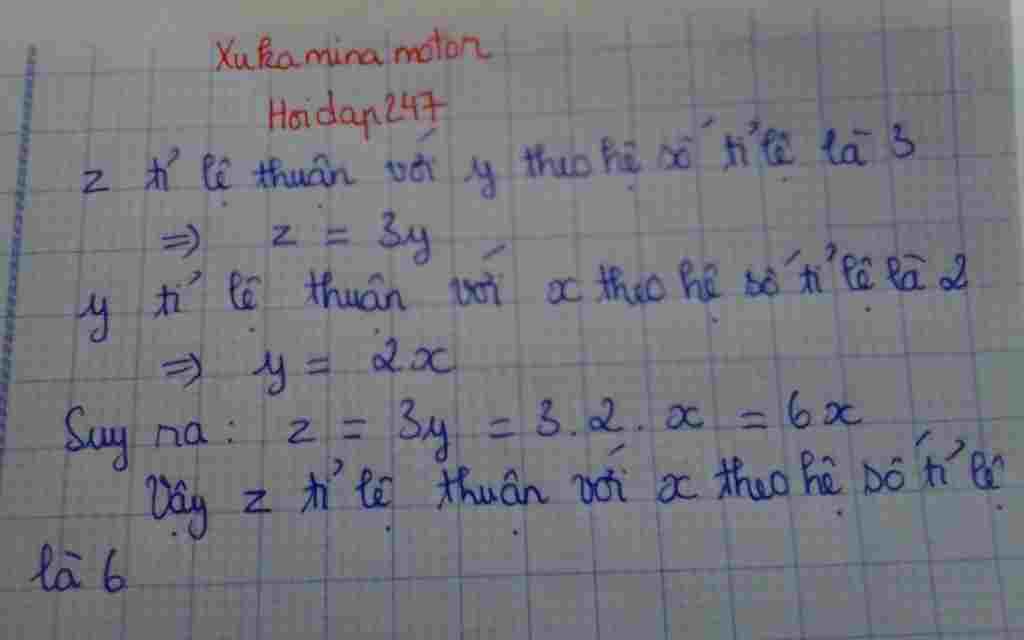 Xukamina moton
Hoidap247
z tỉ lệ thuận với y theo hệ số tỉ lệ là 3
=> z = 3y
y tỉ lệ thuận với x theo hệ số tỉ lệ là 2
=> y = 2x
Suy ra: z = 3y = 3.2.x = 6x
Vậy z tỉ lệ thuận với x theo hệ số tỉ lệ
là 6